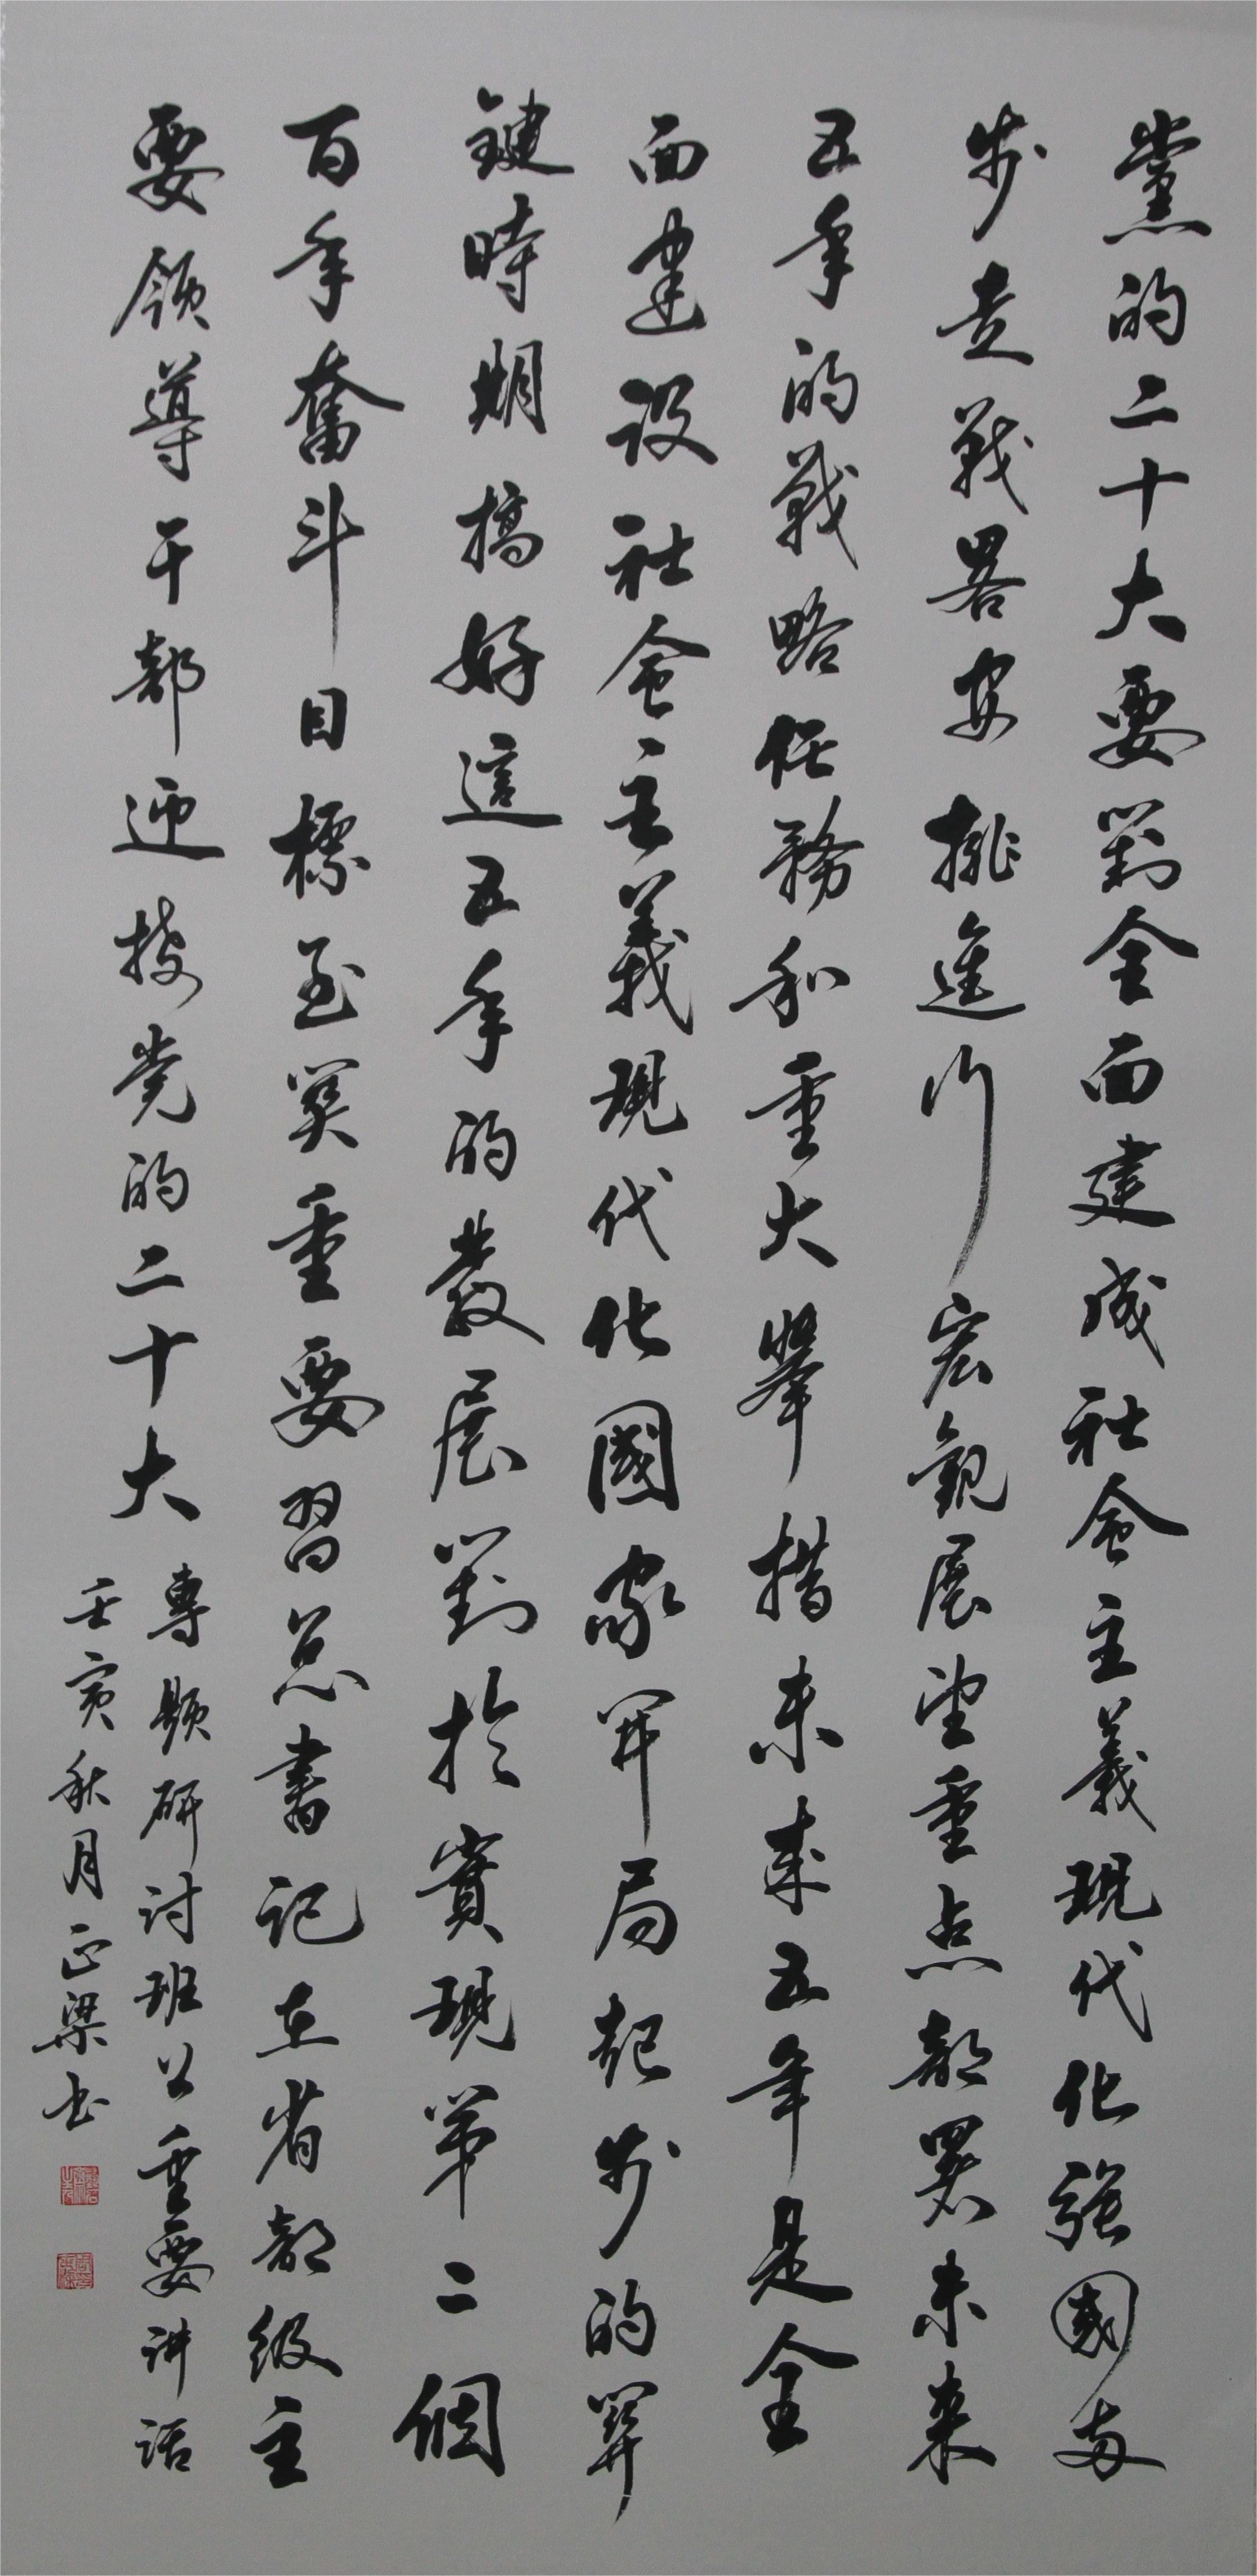 黨的二十大要對全面建成社会主義現代化強國两
步走戰畧安排進行宏觀展望重点部署未来
五年的戰略任務和重大舉措未来五年是全
面建设社会主義現代化國家開局起步的關
鍵時期搞好這五年的發展對於實現第二個
百年奮斗目標至關重要習总書记在省部级主
要领導干部迎接党的二十大
專题研讨班上重要讲话
壬寅秋月正梁书